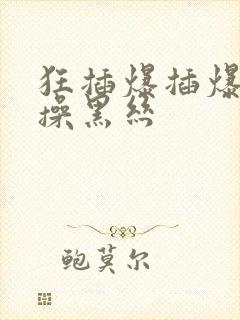 狂插爆插爆
操黑丝
鲍莫尔